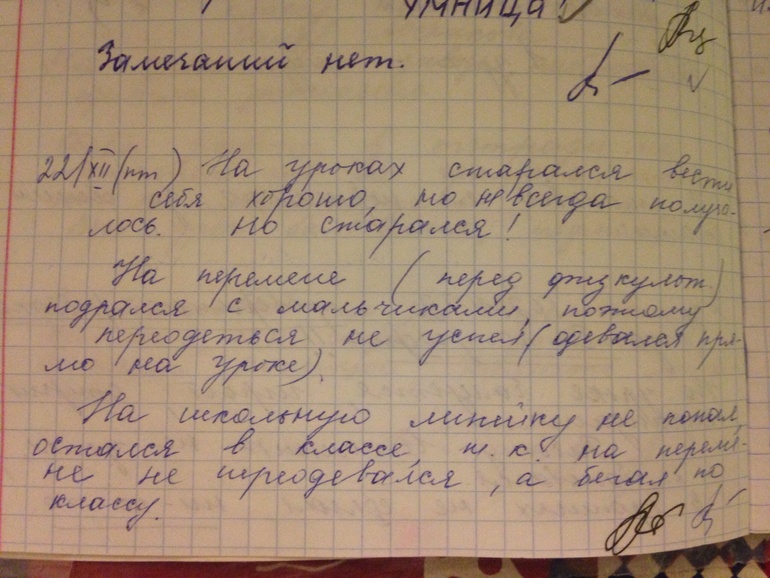 УМНИЦА!
Замечаний нет.
22/XII (пт) На уроках старался вести
себя хорошо, но не всегда получа-
лось. Но старался!
На перемене (перед физкульт.)
подрался с мальчиками, поэтому
переодеться не успел (одевался пря-
мо на уроке).
На школьную линейку не попал,
остался в классе, т.к. на переме-
не не переодевался, а бегал по
классу.